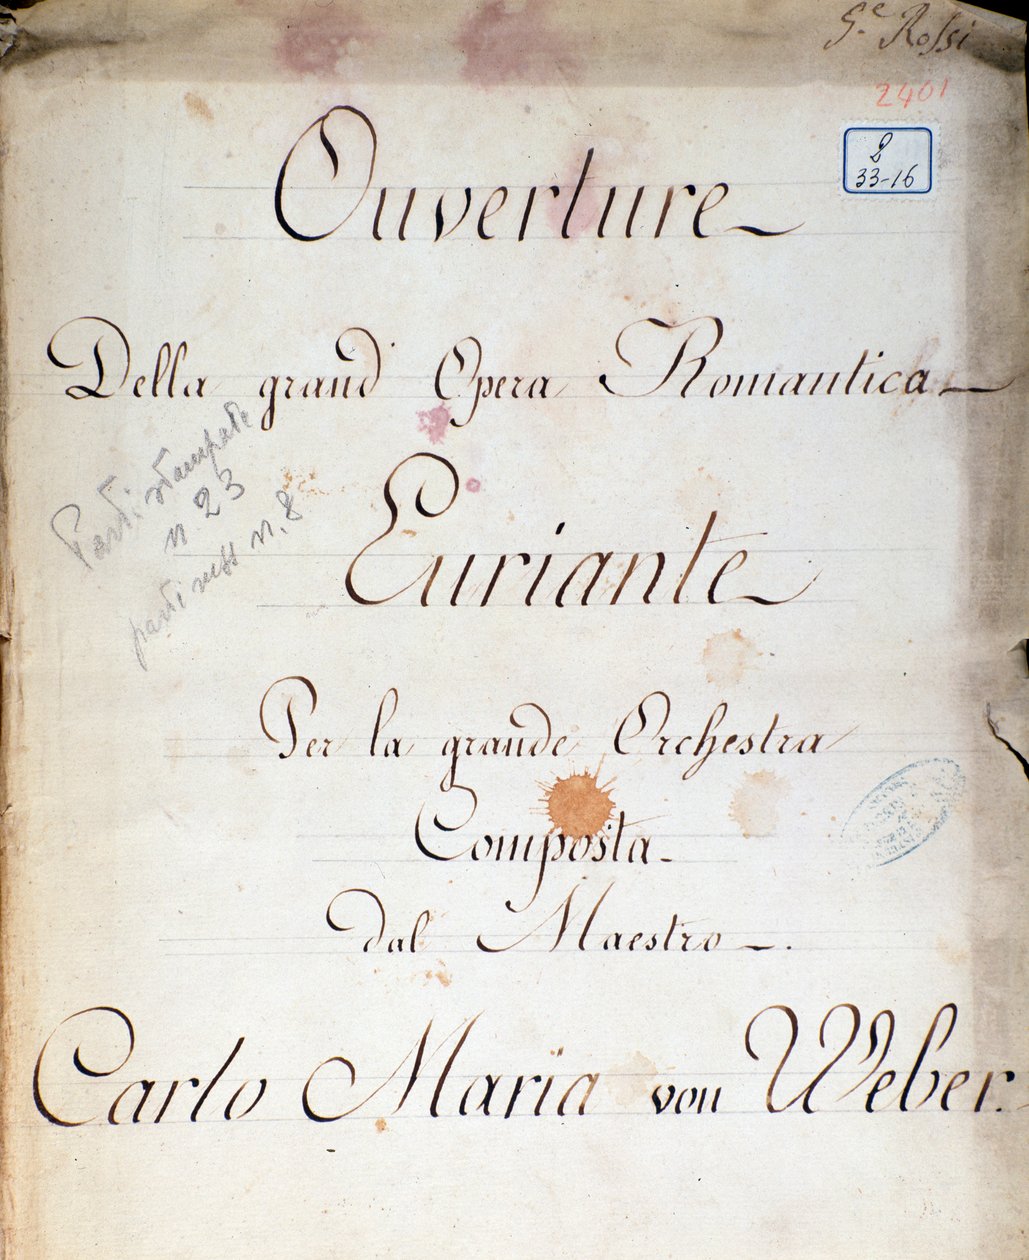 G.e Rossi
2401
2
33-16
Ouverture
Della grand' Opera Romantica
Parti stampate
n. 23
parti mss n. 8
Euriante
Per la grande Orchestra
Composta
dal Maestro
Carlo Maria von Weber.